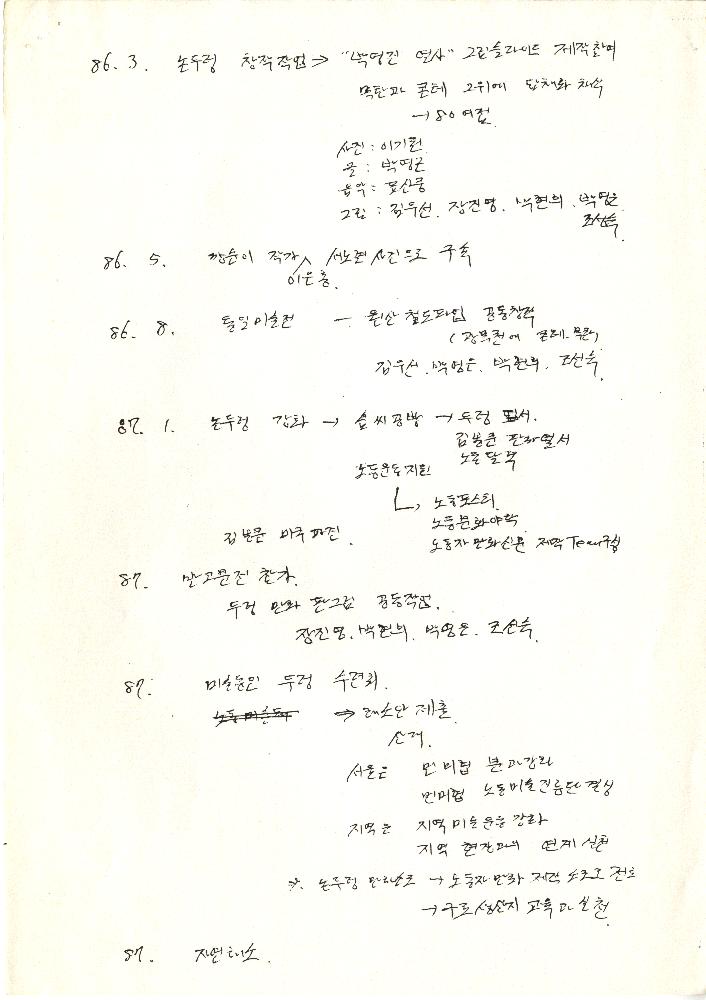 86. 3. 논두렁 창작작업 → "박영진 열사" 그림슬라이드 제작참여
목탄과 콘테 그위에 담채와 채색
→ 80여점
사진 : 이기원
글 : 박영근
음악 :
그림 : 김우선. 장진영. 박현희. 박영은
조선숙.
86. 5. 깡순이 작가 서노련 사건으로 구속
이은홍.
86. 8. 통일미술전 — 철도파업 공동창작
(광목천에 콘테. 목탄)
김우선. 박영은. 박현희. 조선숙.
87. 1. 논두렁 강화 → 솜씨공방 → 두렁 엽서.
김봉준 판화엽서
노동달력
노동운동지원
노동포스터
노동문화야학
김봉준 미국 파견. 노동자 만화신문 제작 Team구성
87. 반고문전 참가.
두렁 만화 판그림 공동작업.
장진영. 박현희. 박영은. 조선숙.
87. 미술동인 두렁 수련회.
→ 해소안 제출
서울은 민미협 분과강화
민미협 노동미술 결성
지역은 지역미술운동 강화
지역 현장과의 연계 실천
※ 논두렁 → 노동자 만화 제작
→ 구로 교육과 실천.
87. 자연해소.